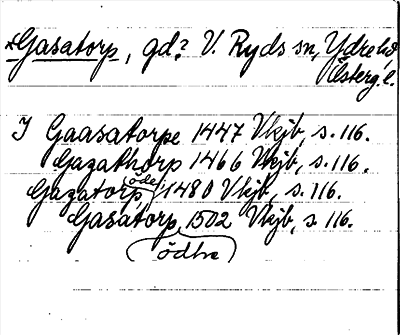 *Gasatorp, gd? V. Ryds sn, Ydre hd
Österg. l.
I Gaasatorpe 1447 Vkjb, s. 116.
Gazathorp 1466 Vkjb, s. 116.
Gazatorp (öde) 1480 Vkjb, s. 116.
Gasatorp, 1502 Vkjb, s. 116.
(ödhe)